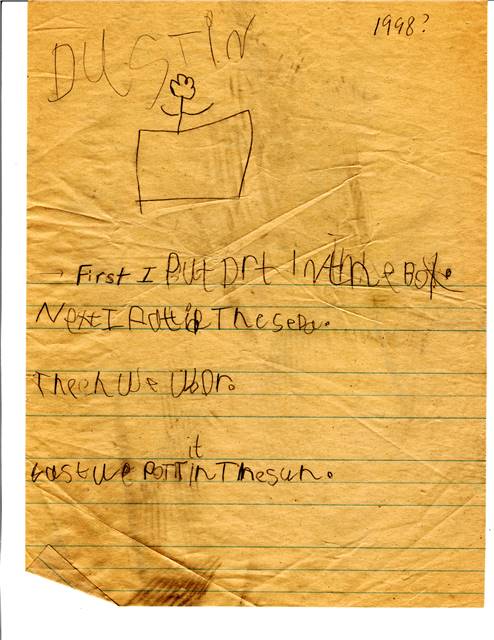 1998?
DUSTIN
→ First I Put Drt in the Box.
Next I Patt in The seda.
Then We Wodr.
it
Last we PoTT in The sun.